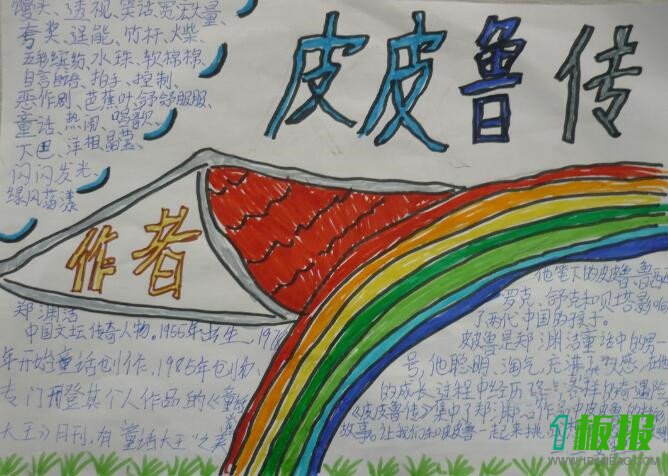 馒头、透视、笑话、宽宏大量、
夸奖、逞能、竹杆、火柴、
五彩缤纷、水珠、软棉棉、
自言自语、拍手、控制、
恶作剧、芭蕉叶、舒舒服服、
童话、热闹、唱歌、
下巴、洋相、
闪闪发光、
绿风荡漾
皮皮鲁传
作者
郑渊洁
中国文坛传奇人物。1955年出生
年开始童话创作，1985年创办
专门刊登其个人作品的《童话
大王》月刊，有"童话大王"之美
他笔下的皮皮鲁
罗克、舒克和贝塔影响
了两代中国的孩子。
皮皮鲁是郑渊洁童话中的男一
号，他聪明、淘气、充满
的成长过程中经历
《皮皮鲁传》集中了郑
故事。让我们和皮皮鲁一起来挑
1板报
WWW.1BANBAO.COM